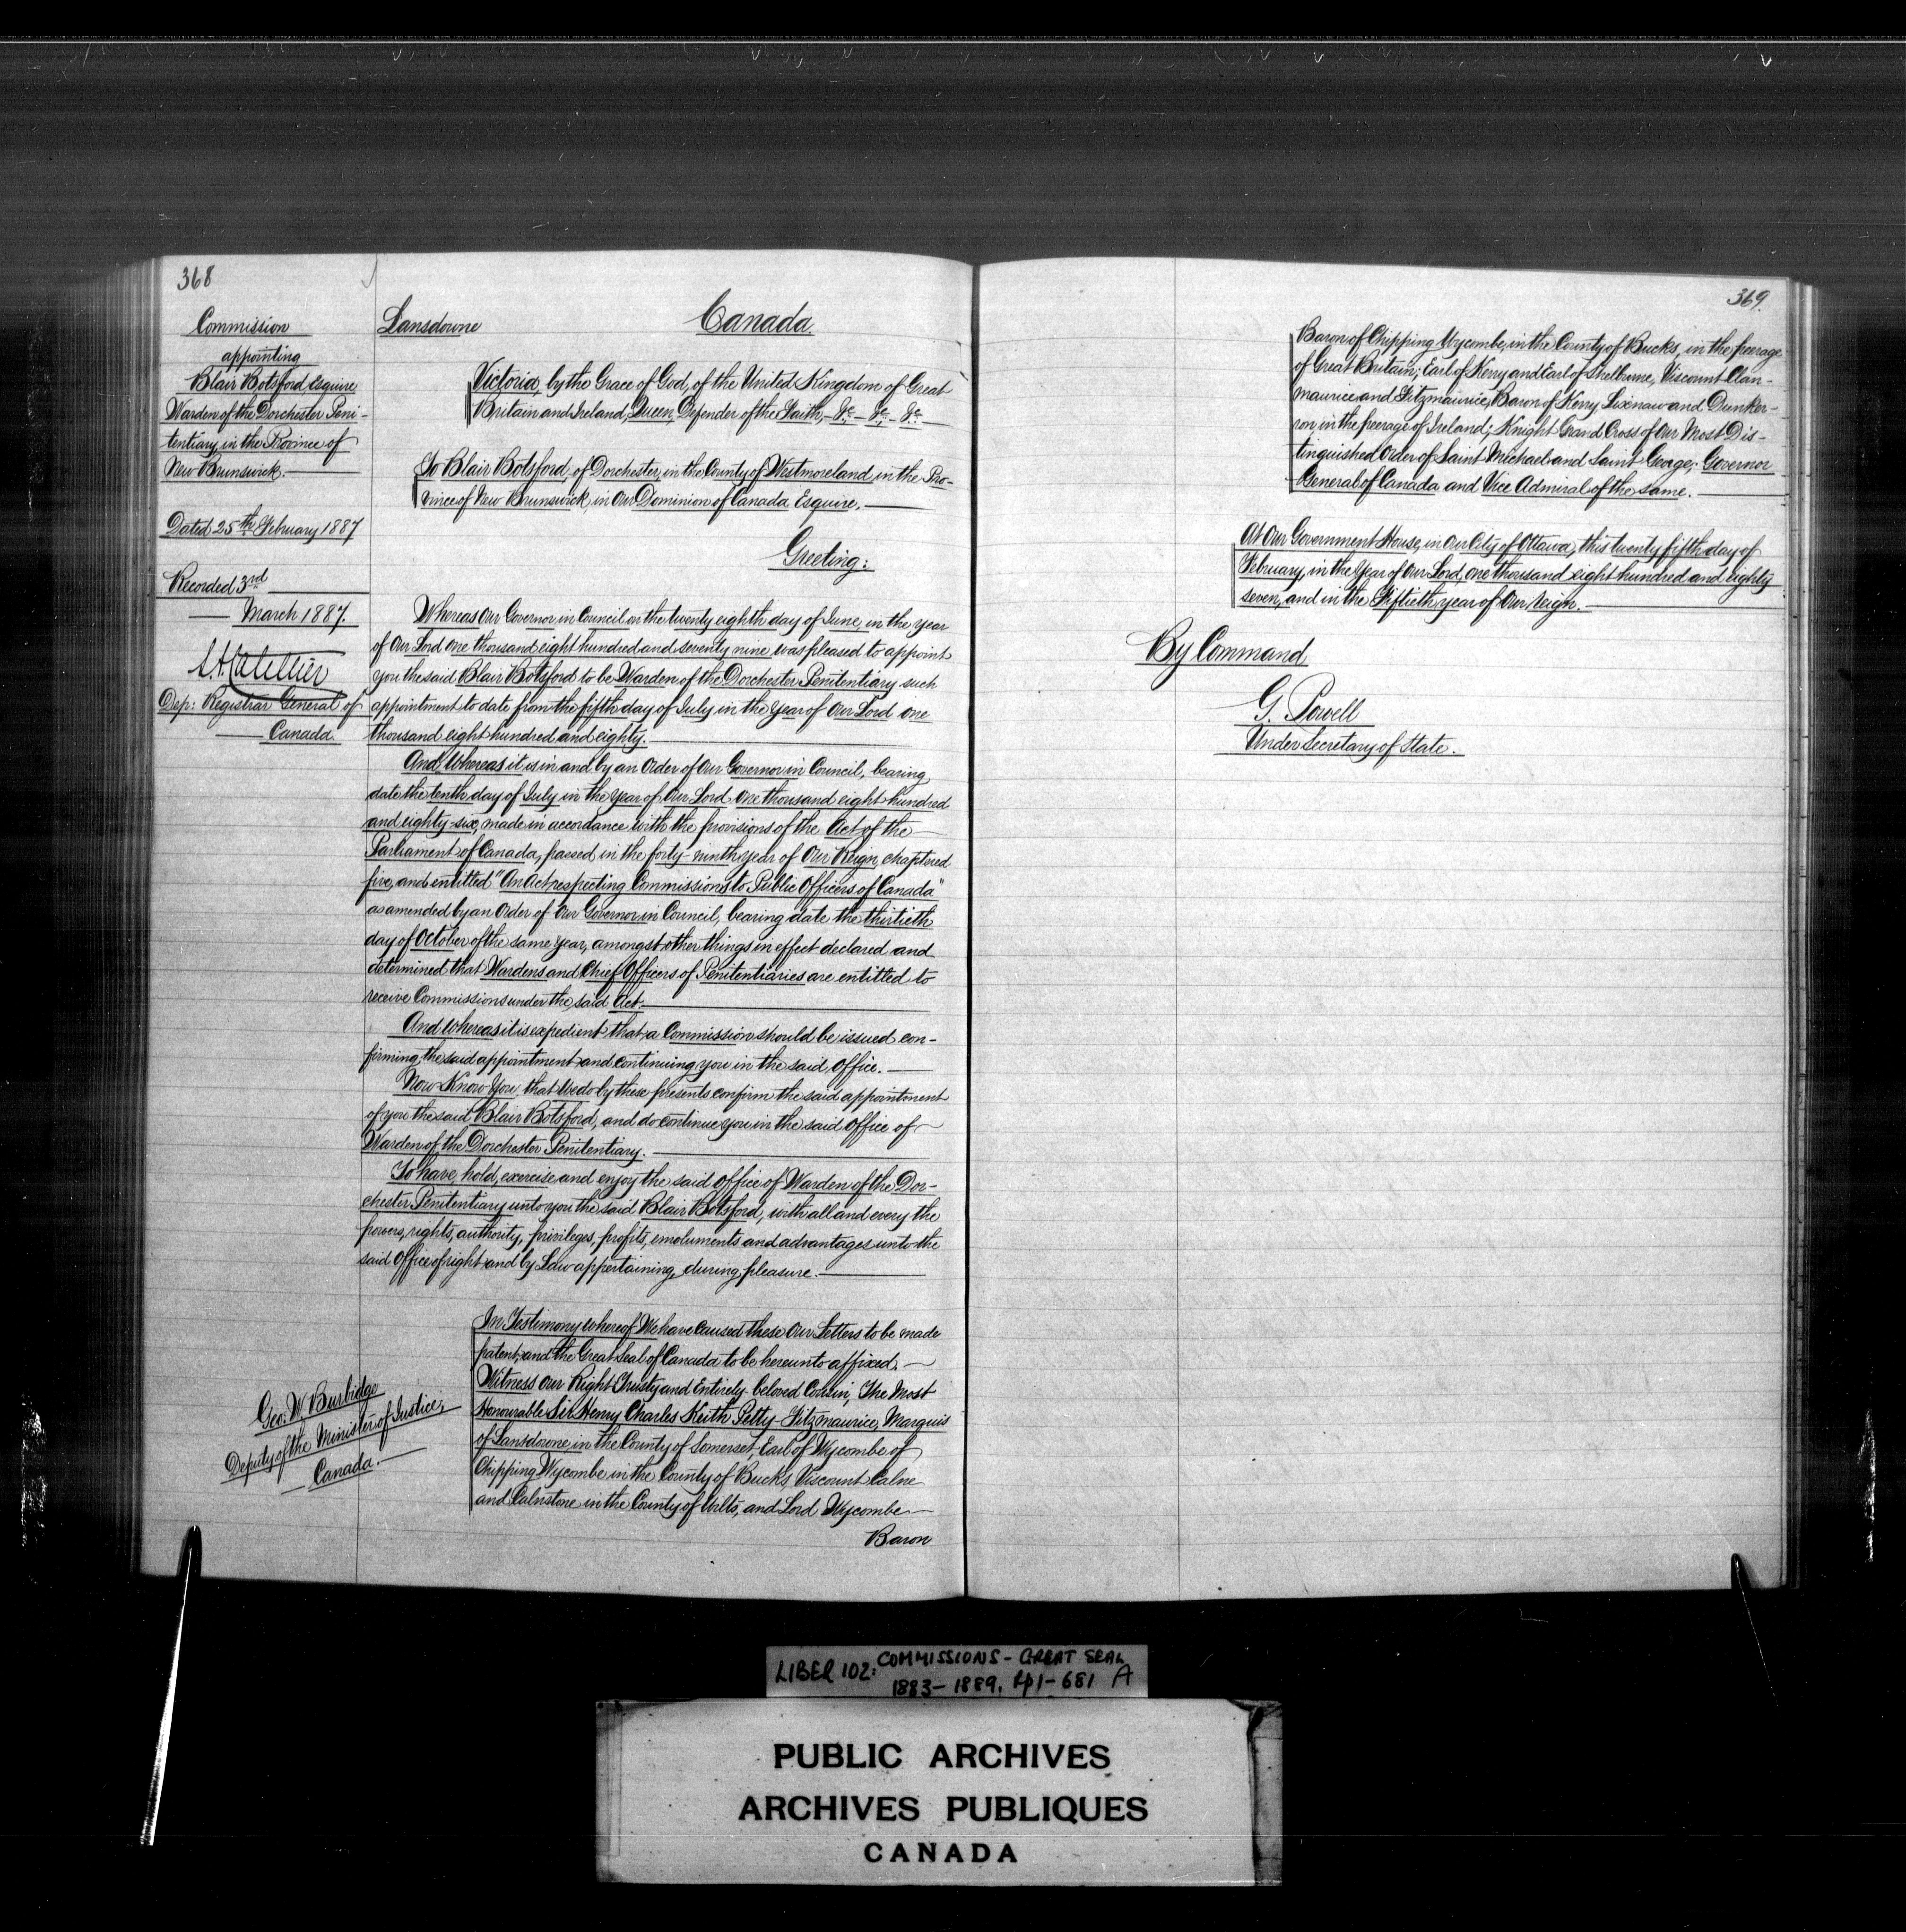 368
Commission
appointing
Blair Botsford Esquire
Warden of the Dorchester Peni-
tentiary, in the Province of
New Brunswick.
Dated 25th February 1887
Recorded 3rd
March 1887.
Dep: Registrar General of
Canada.
Lansdowne
Canada
Victoria, by the Grace of God, of the United Kingdom of Great
Britain and Ireland, Queen, Defender of the Faith, - &c - &c - &c -
To Blair Botsford, of Dorchester, in the County of Westmoreland in the Pro-
vince of New Brunswick, in Our Dominion of Canada Esquire.
Greeting:
Whereas Our Governor in Council on the twenty eighth day of June, in the year
of Our Lord one thousand eight hundred and seventy nine was pleased to appoint
you the said Blair Botsford to be Warden of the Dorchester Penitentiary such
appointment to date from the fifth day of July in the Year of Our Lord one
thousand eight hundred and eighty.
And Whereas it is in and by an Order of Our Governor in Council, bearing
date the tenth day of July in the Year of Our Lord One thousand eight hundred
and eighty-six, made in accordance with the provisions of the Act of the
Parliament of Canada, passed in the forty-ninth year of Our Reign, chaptered
five, and entitled "An Act respecting Commissions to Public Officers of Canada"
as amended by an Order of Our Governor in Council, bearing date the thirtieth
day of October of the same Year, amongst other things in effect declared and
determined that Wardens and Chief Officers of Penitentiaries are entitled to
receive Commissions under the said Act.
And Whereas it is expedient that a Commission should be issued con-
firming the said appointment and continuing you in the said Office.
Now Know You, that We do by these presents confirm the said appointment
of you the said Blair Botsford, and do continue you in the said Office of
Warden of the Dorchester Penitentiary.
To have, hold, exercise and enjoy the said Office of Warden of the Dor-
chester Penitentiary unto you the said Blair Botsford, with all and every the
powers, rights, authority, privileges, profits, emoluments and advantages unto the
said Office of right and by Law appertaining, during pleasure.
In Testimony whereof We have caused these Our Letters to be made
patent, and the Great Seal of Canada to be hereunto affixed.
Witness Our Right Trusty and Entirely beloved Cousin, The Most
Honourable Sir Henry Charles Keith Petty-Fitzmaurice, Marquis
of Lansdowne in the County of Somerset, Earl of Wycombe of
Chipping Wycombe in the County of Bucks, Viscount Calne
and Calnstone in the County of Wilts, and Lord Wycombe
Baron
Geo: W. Burbidge
Deputy of the Minister of Justice,
Canada.
369.
Baron of Chipping Wycombe, in the County of Bucks, in the peerage
of Great Britain; Earl of Kerry and Earl of Shelburne, Viscount Clan-
maurice and Fitzmaurice, Baron of Kerry Lixnaw and Dunker-
ron in the peerage of Ireland; Knight Grand Cross of Our Most Dis-
tinguished Order of Saint Michael and Saint George; Governor
General of Canada and Vice Admiral of the same.
At Our Government House, in Our City of Ottawa, this twenty fifth day of
February, in the Year of Our Lord, one thousand eight hundred and eighty
seven, and in the Fiftieth year of Our reign.
By Command
G. Powell
Under Secretary of State.
LIBER 102: COMMISSIONS - GREAT SEAL
1883 - 1889. pp1-681 A
PUBLIC ARCHIVES
ARCHIVES PUBLIQUES
CANADA